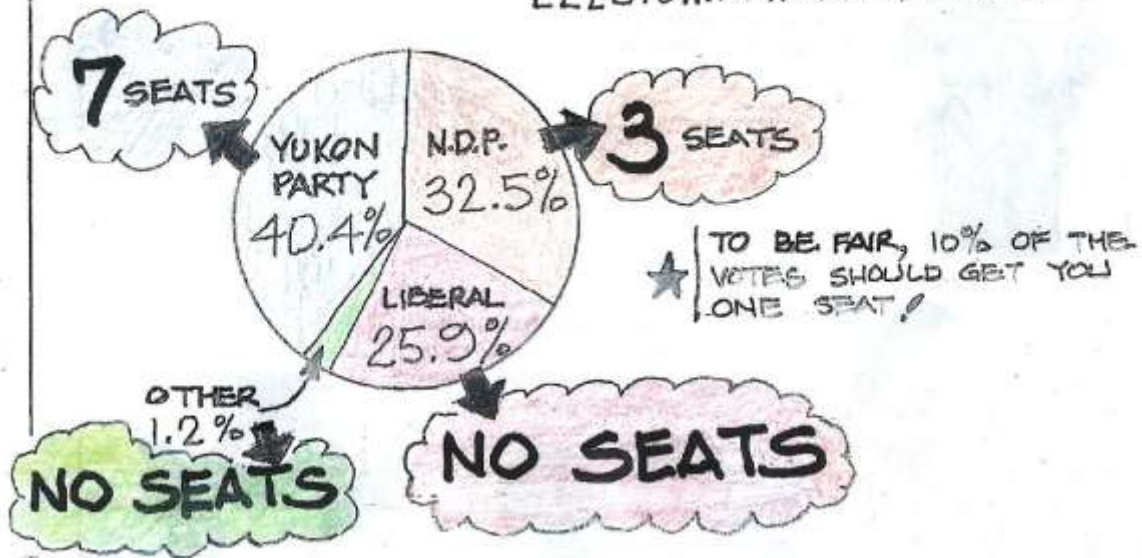 7 SEATS
YUKON
PARTY
40.4%
N.D.P.
32.5%
3 SEATS
TO BE FAIR, 10% OF THE
VOTES SHOULD GET YOU
ONE SEAT!
LIBERAL
25.9%
OTHER
1.2%
NO SEATS
NO SEATS